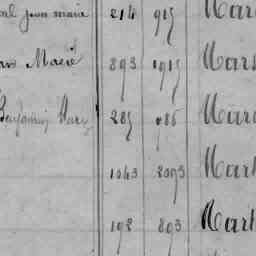 Jean Marie 214 915 Mar
Marie 893 1915 Mars
Benjamin Mary 285 986 Mar
1043 2093 Mart
198 893 Mart